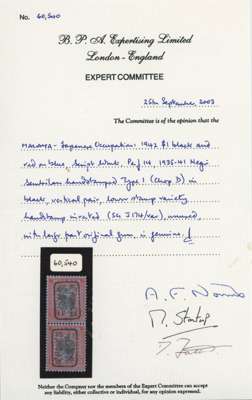 No. 60,540
B. P. A. Expertising Limited
London - England
EXPERT COMMITTEE
25th September 2003
The Committee is of the opinion that the
MALAYA - Japanese Occupation: 1942 $1 black and
red on blue, Script Wmk. Perf 14, 1935-41 Negri
Sembilan handstamped Type 1 (Chop D) in
black, vertical pair, lower stamp variety
handstamp inverted (SG J174/var), unused,
with large part original gum, is genuine.
60,540
Neither the Company nor the members of the Expert Committee can accept
any liability, either collective or individual, for any opinion expressed.